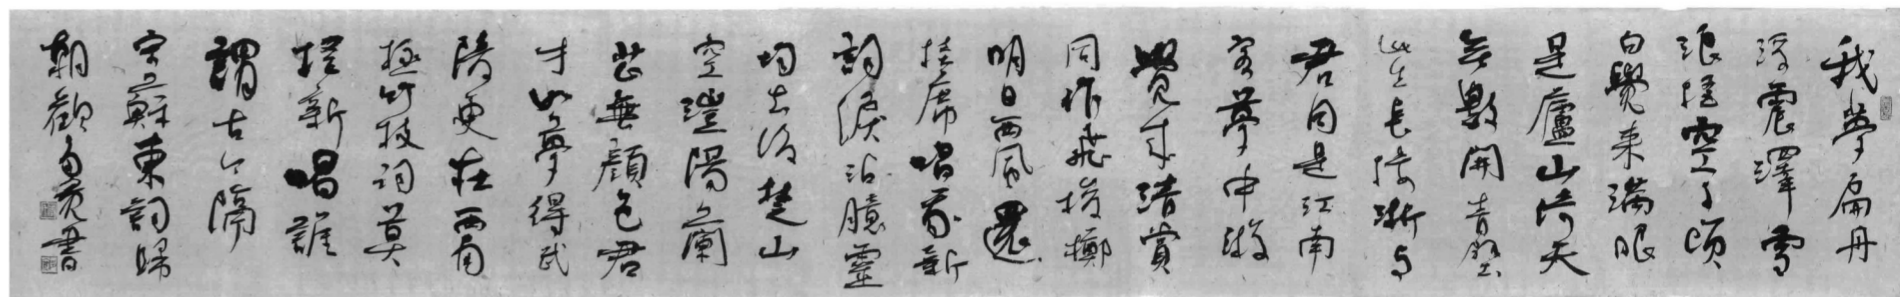 我夢扁舟
浮震澤雪
浪摇空千頃
白覺来滿眼
是廬山倚天
無數開青壁
此生長接淅与
君同是江南
客夢中游
覺来清賞
同作飛梭擲
明日西風還
挂席唱我新
詞淚沾臆靈
均去後楚山
空澧陽蘭
芷無顔色君
才如夢得武
陵更在西南
極竹枝詞莫
徭新唱誰
謂古今隔
宋蘇東詞歸
朝歡書